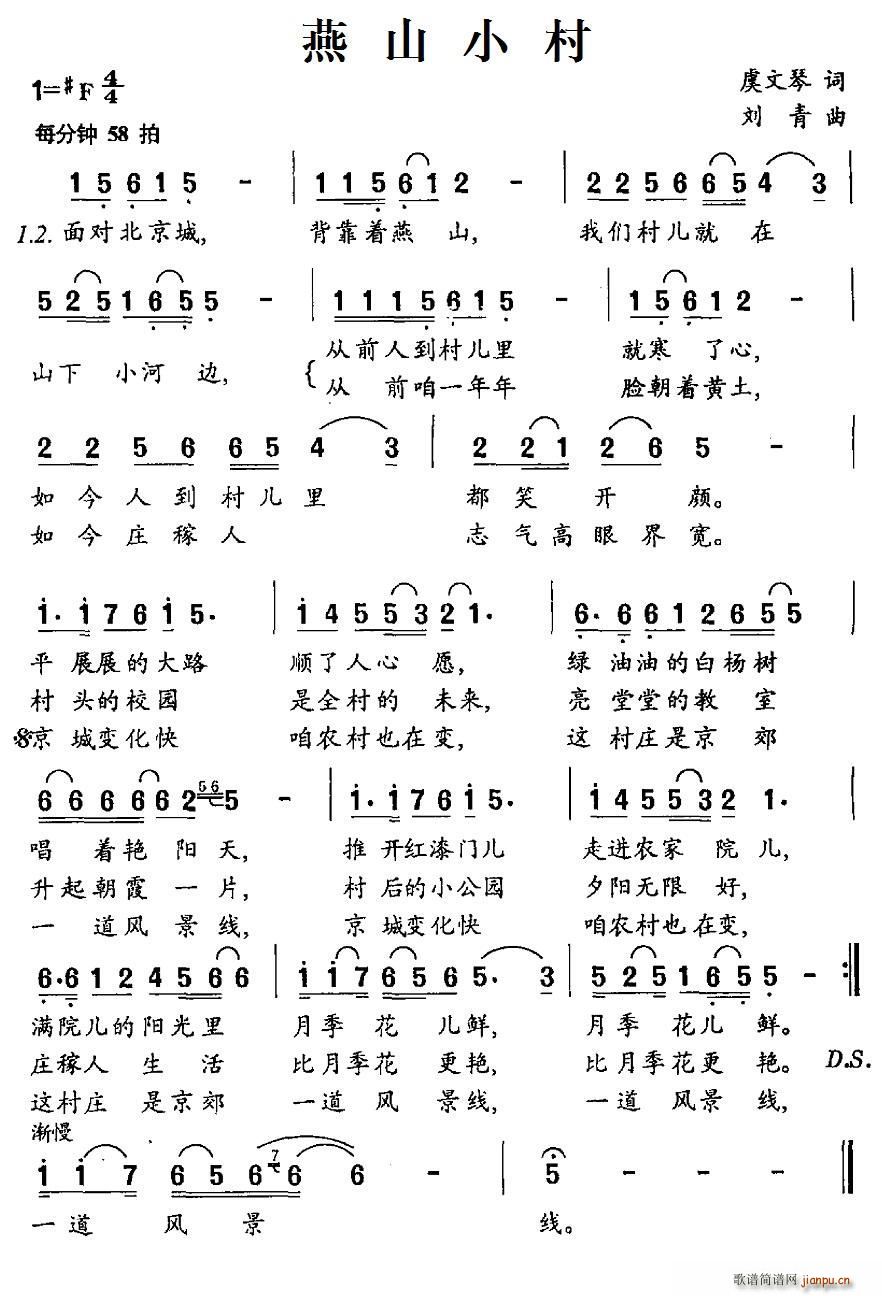 燕山小村
1=♯F 4/4
虞文琴 词
每分钟 58 拍
刘 青 曲
1 5 6 1 5 - | 1 1 5 6 1 2 - | 2 2 5 6 6 5 4 3 |
1.2. 面对北京城, 背靠着燕 山, 我们村儿就 在
5 2 5 1 6 5 5 - | 1 1 1 5 6 1 5 - | 1 5 6 1 2 - |
从前人到村儿里 就寒 了心,
山下 小河 边,
从 前咱一年年 脸朝着黄土,
2 2 5 6 6 5 4 3 | 2 2 1 2 6 5 - |
如今人到村儿里 都笑开 颜。
如今庄稼人 志气高眼界宽。
1· 1 7 6 1 5· | 1 4 5 5 3 2 1· | 6· 6 6 1 2 6 5 5 |
平 展展的大路 顺了人心 愿, 绿 油油的白杨树
村 头的校园 是全村的 未来, 亮 堂堂的教 室
京 城变化快 咱农村也在变, 这 村庄是京 郊
6 6 6 6 6 2 56 5 - | 1· 1 7 6 1 5· | 1 4 5 5 3 2 1· |
唱 着艳 阳天, 推 开红漆门儿 走进农家 院儿,
升起朝霞 一片, 村 后的小公园 夕阳无限 好,
一 道风 景线, 京 城变化快 咱农村也在变,
6· 6 1 2 4 5 6 6 | 1 1 7 6 5 6 5· 3 | 5 2 5 1 6 5 5 - :‖
满院儿的阳光里 月季 花 儿鲜, 月季 花儿 鲜。
庄稼人 生 活 比月季花 更艳, 比月季花更 艳。 D.S.
这村庄 是京郊 一道 风 景线, 一道 风景 线,
渐慢
1 1 7 6 5 6 7 6 6 - | 5 - - - ‖
一道 风 景 线。
歌谱简谱网
jianpu.cn